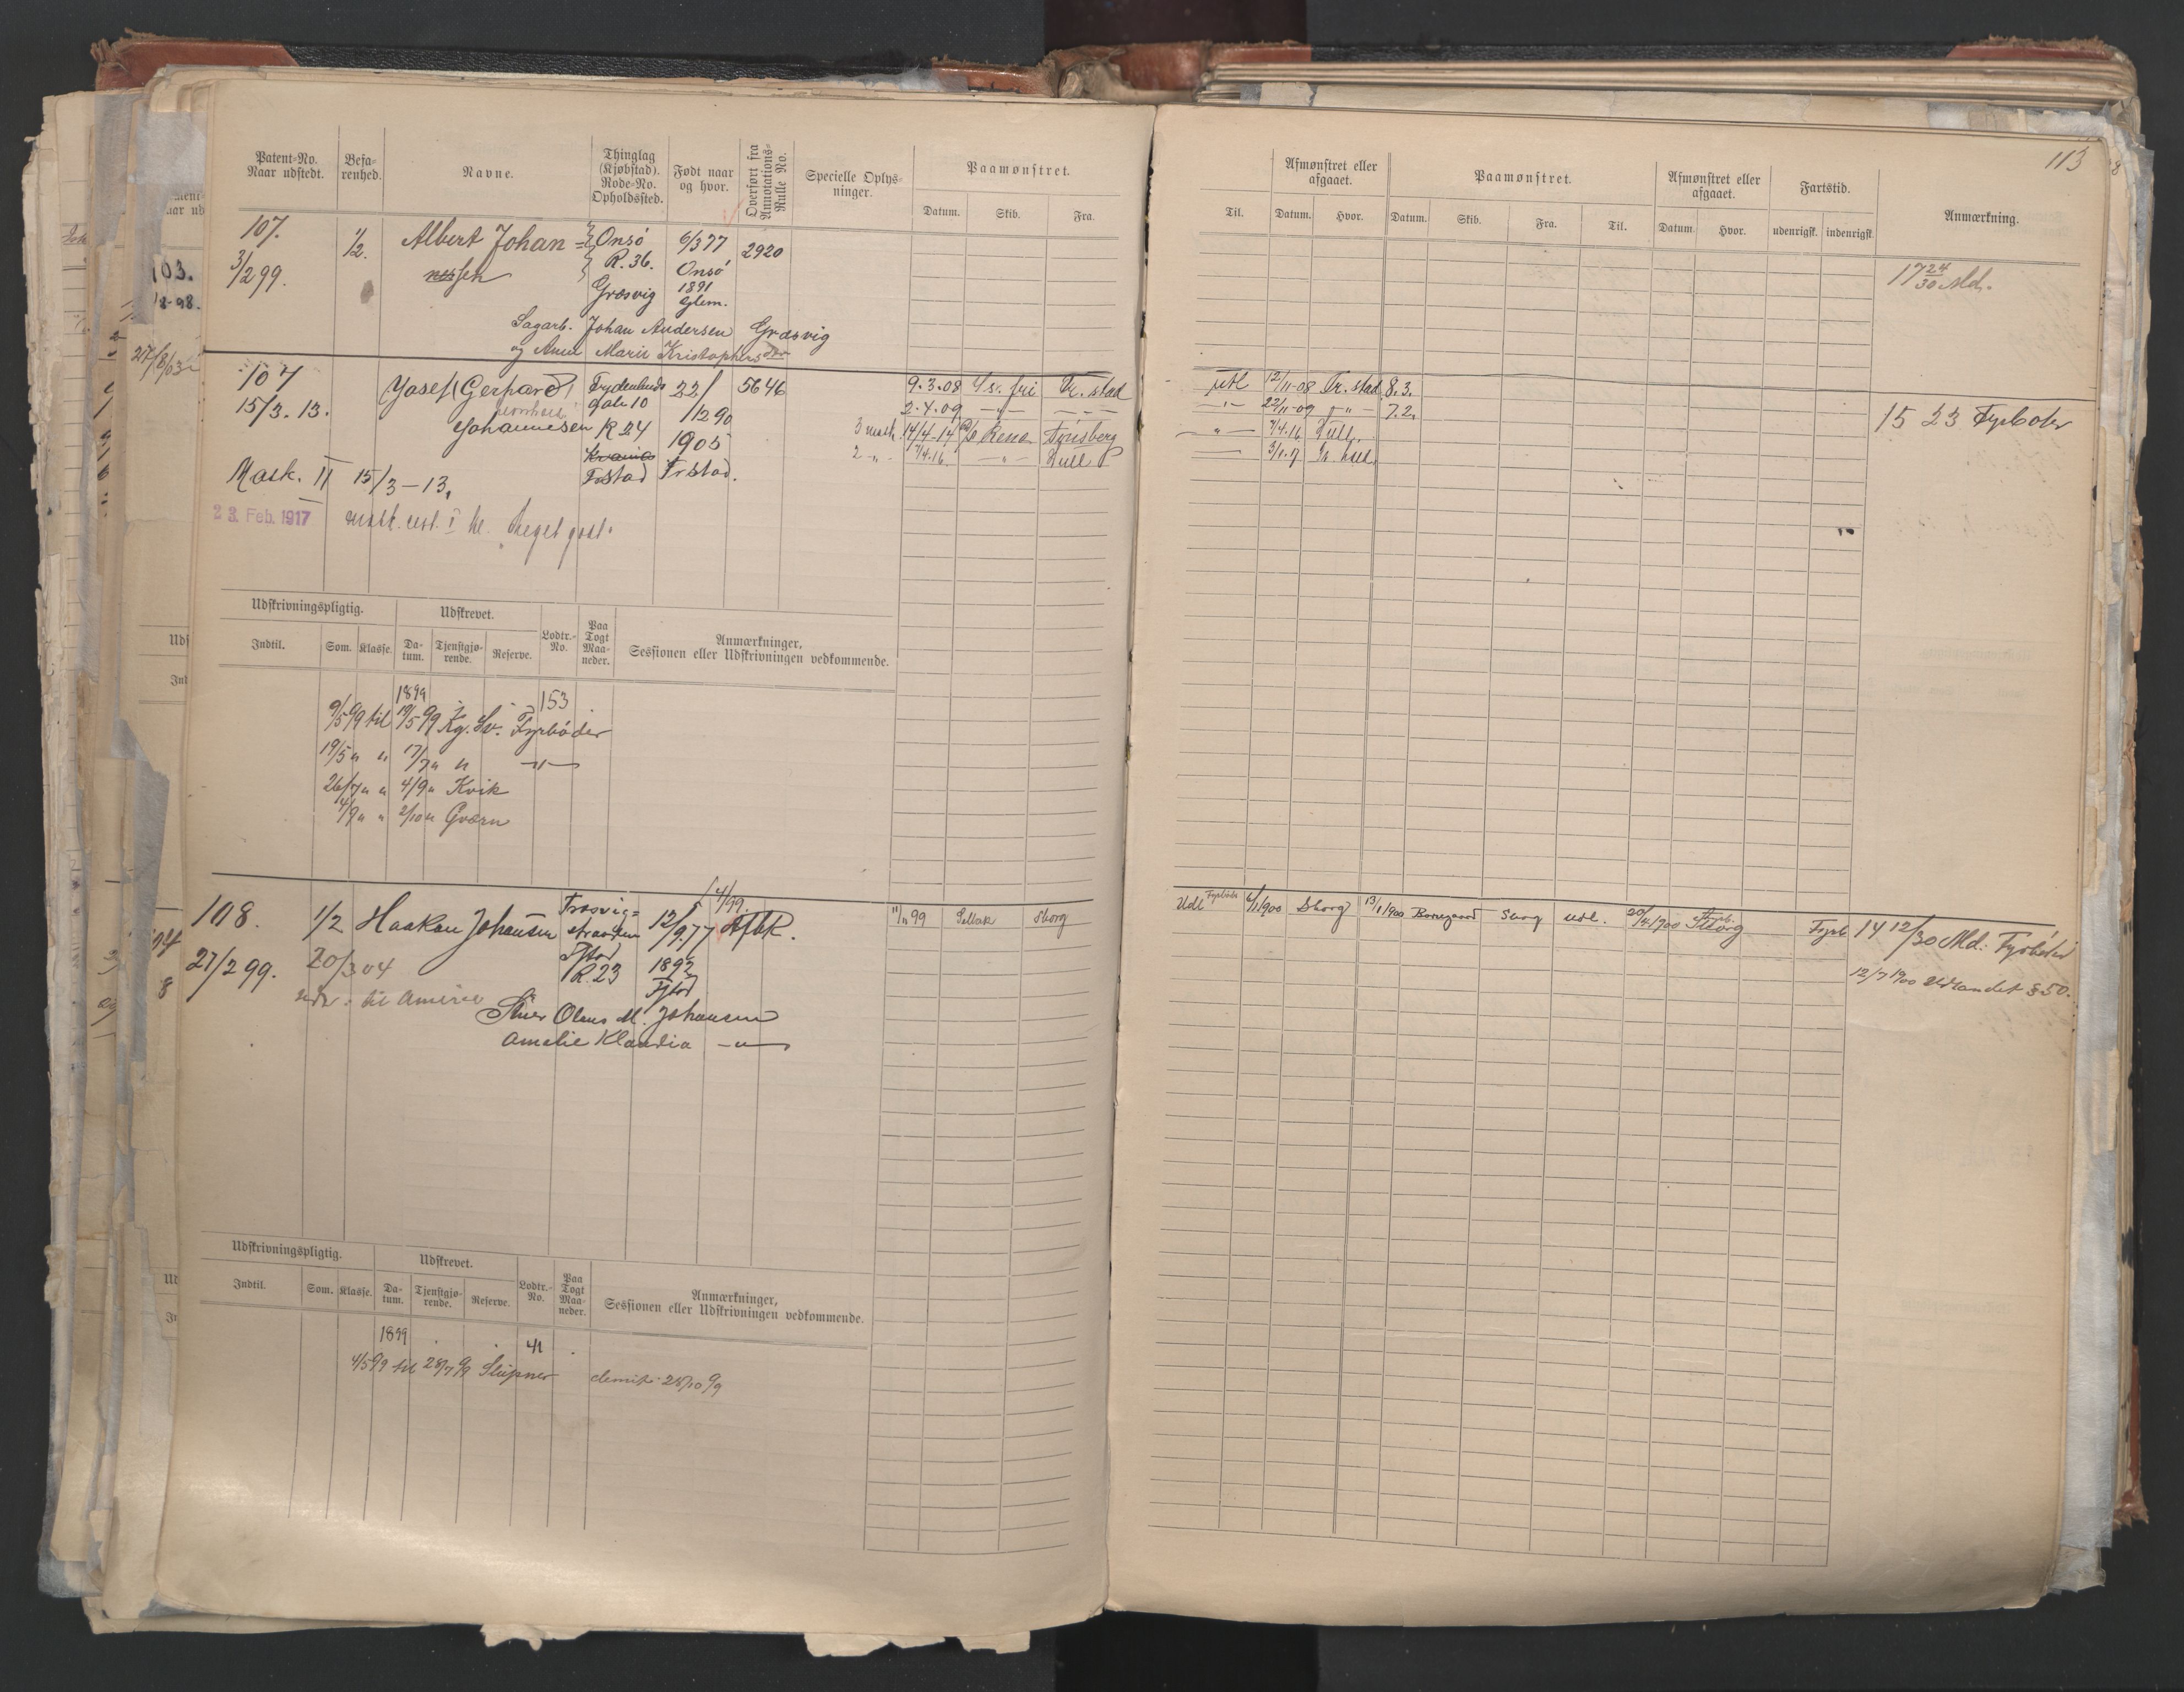 Patent-No.
Naar udstedt.
Befa-
renhed.
Navne.
Thinglag
(Kjøbstad).
Rode-No.
Opholdssted.
Født naar
og hvor.
Overført fra
Annotations-
Rulle No.
Specielle Oplys-
ninger.
Paamønstret.
Datum. Skib. Fra.
107.
3/2 99.
1/2.
Albert Johan =
sen
Onsö
R. 36.
Græsvig
6/3 77
Onsö
1891
Glem.
2920
Sagarb. Johan Andersen Græsvig
og Anne Marie Kristophersdtr
107
15/3. 13.
Josef Gerhard
Johannesen
Frydenlunds
gate 10
R 24
Fstad
22/
1290
1905
Frstad.
5646
9.3.08 fri Fr. stad
2.4.09 — " —
3 mask. 14/4-14 Rena Tønsberg
2 - " - 7/4.16. — " — Hull
Mask. II 15/3 – 13.
23. Feb. 1917 mask. est. I kl. Meget godt.
Udskrivningspligtig.
Udskrevet.
Indtil. Som. Klasse. Da-
tum. Tjenstgjø-
rende. Reserve.
Lodtr.-
No.
Paa
Togt
Maa-
neder.
Anmærkninger,
Sessionen eller Udskrivningen vedkommende.
1899 153
9/5 99 til 19/5 99 Kg. Sv. Fyrbøder
19/5 " " 17/7 " " — " —
26/7 " " 4/9 " Kvik
4/9 " " 2/10 " Gværn
108.
27/2 99.
1/2 Haakon Johansen
20/3 04
Trosvig=
stranden
Fstad
R. 23
12/9. 77
1892
Fstad
4/99.
11/11 99 Sellak Sborg
Olaus M. Johansen
Amalie Klaudia — " —
Udskrivningspligtig.
Udskrevet.
Indtil. Som. Klasse. Da-
tum. Tjenstgjø-
rende. Reserve.
Lodtr.-
No.
Paa
Togt
Maa-
neder.
Anmærkninger,
Sessionen eller Udskrivningen vedkommende.
1899 41
4/5 99 til 28/7 99 Sleipner demit. 28/10 99
113
Til.
Afmønstret eller
afgaaet.
Datum. Hvor.
Paamønstret.
Datum. Skib. Fra. Til.
Afmønstret eller
afgaaet.
Datum. Hvor.
Fartstid.
udenrigsk. indenrigsk.
Anmærkning.
17 24/30 Md.
utl 12/11-08 Fr. stad 8.3.
— " — 22/11-09 — " — 7.2.
— " — 7/4.16 Hull.
15 23 Fyrboter
Udl Fyrbøde 6/1 1900 Sborg 13/1 1900 Borregaard Sborg udl. 20/4 1900 Sborg Fyrb 14 12/30 Md. Fyrbøder
12/7 1900 § 50.